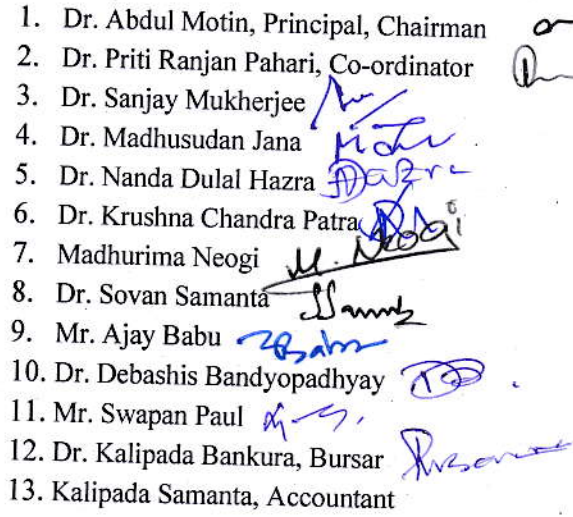 1. Dr. Abdul Motin, Principal, Chairman
2. Dr. Priti Ranjan Pahari, Co-ordinator
3. Dr. Sanjay Mukherjee
4. Dr. Madhusudan Jana
5. Dr. Nanda Dulal Hazra
6. Dr. Krushna Chandra Patra
7. Madhurima Neogi M. Neogi
8. Dr. Sovan Samanta
9. Mr. Ajay Babu
10. Dr. Debashis Bandyopadhyay
11. Mr. Swapan Paul
12. Dr. Kalipada Bankura, Bursar
13. Kalipada Samanta, Accountant